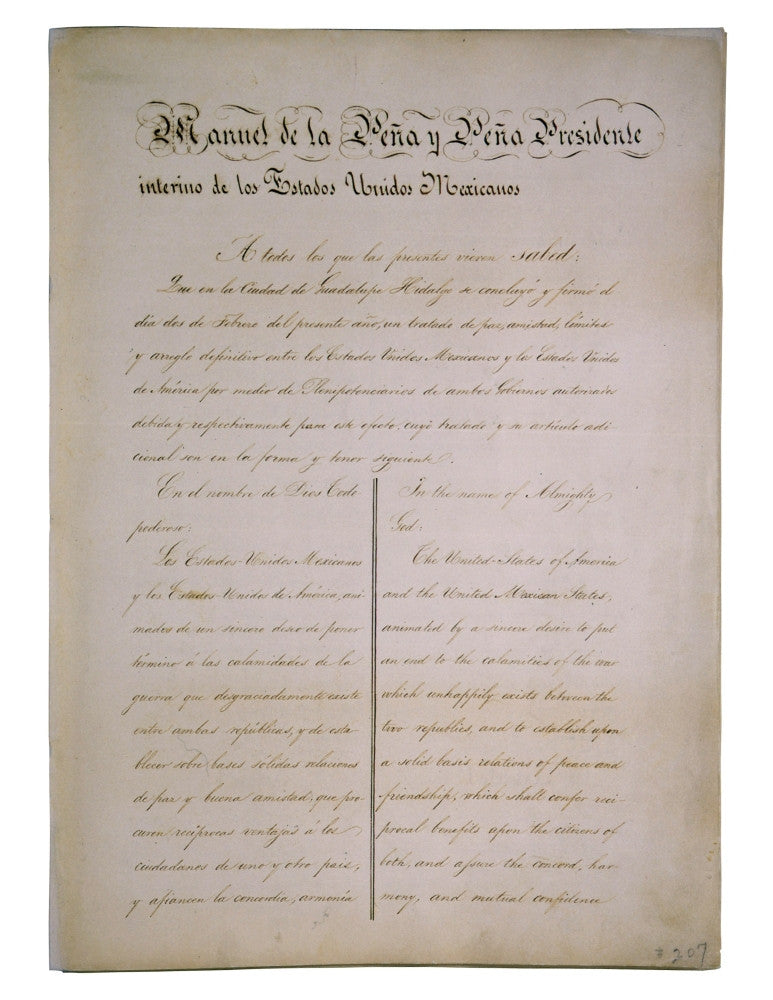 Manuel de la Peña y Peña Presidente
interino de los Estados Unidos Mexicanos
A todos los que las presentes vieren salud:
Que en la Ciudad de Guadalupe Hidalgo se concluyó y firmó el
dia dos de Febrero del presente año, un tratado de paz, amistad, límites
y arreglo definitivo entre los Estados Unidos Mexicanos y los Estados Unidos
de América por medio de Plenipotenciarios de ambos Gobiernos autorizados
debida y respectivamente para este efecto, cuyo tratado y su artículo adi-
cional son en la forma y tenor siguiente.
En el nombre de Dios Todo
poderoso:
Los Estados-Unidos Mexicanos
y los Estados-Unidos de América, ani-
mados de un sincero deseo de poner
término á las calamidades de la
guerra que desgraciadamente existe
entre ambas repúblicas, y de esta-
blecer sobre bases sólidas relaciones
de paz y buena amistad, que pro-
curen reciprocas ventajas á los
ciudadanos de uno y otro pais,
y afiancen la concordia, armonía
In the name of Almighty
God:
The United-States of America
and the United Mexican States,
animated by a sincere desire to put
an end to the calamities of the war
which unhappily exists between the
two republics, and to establish upon
a solid basis relations of peace and
friendship, which shall confer reci-
procal benefits upon the citizens of
both, and assure the concord, har-
mony, and mutual confidence
# 207